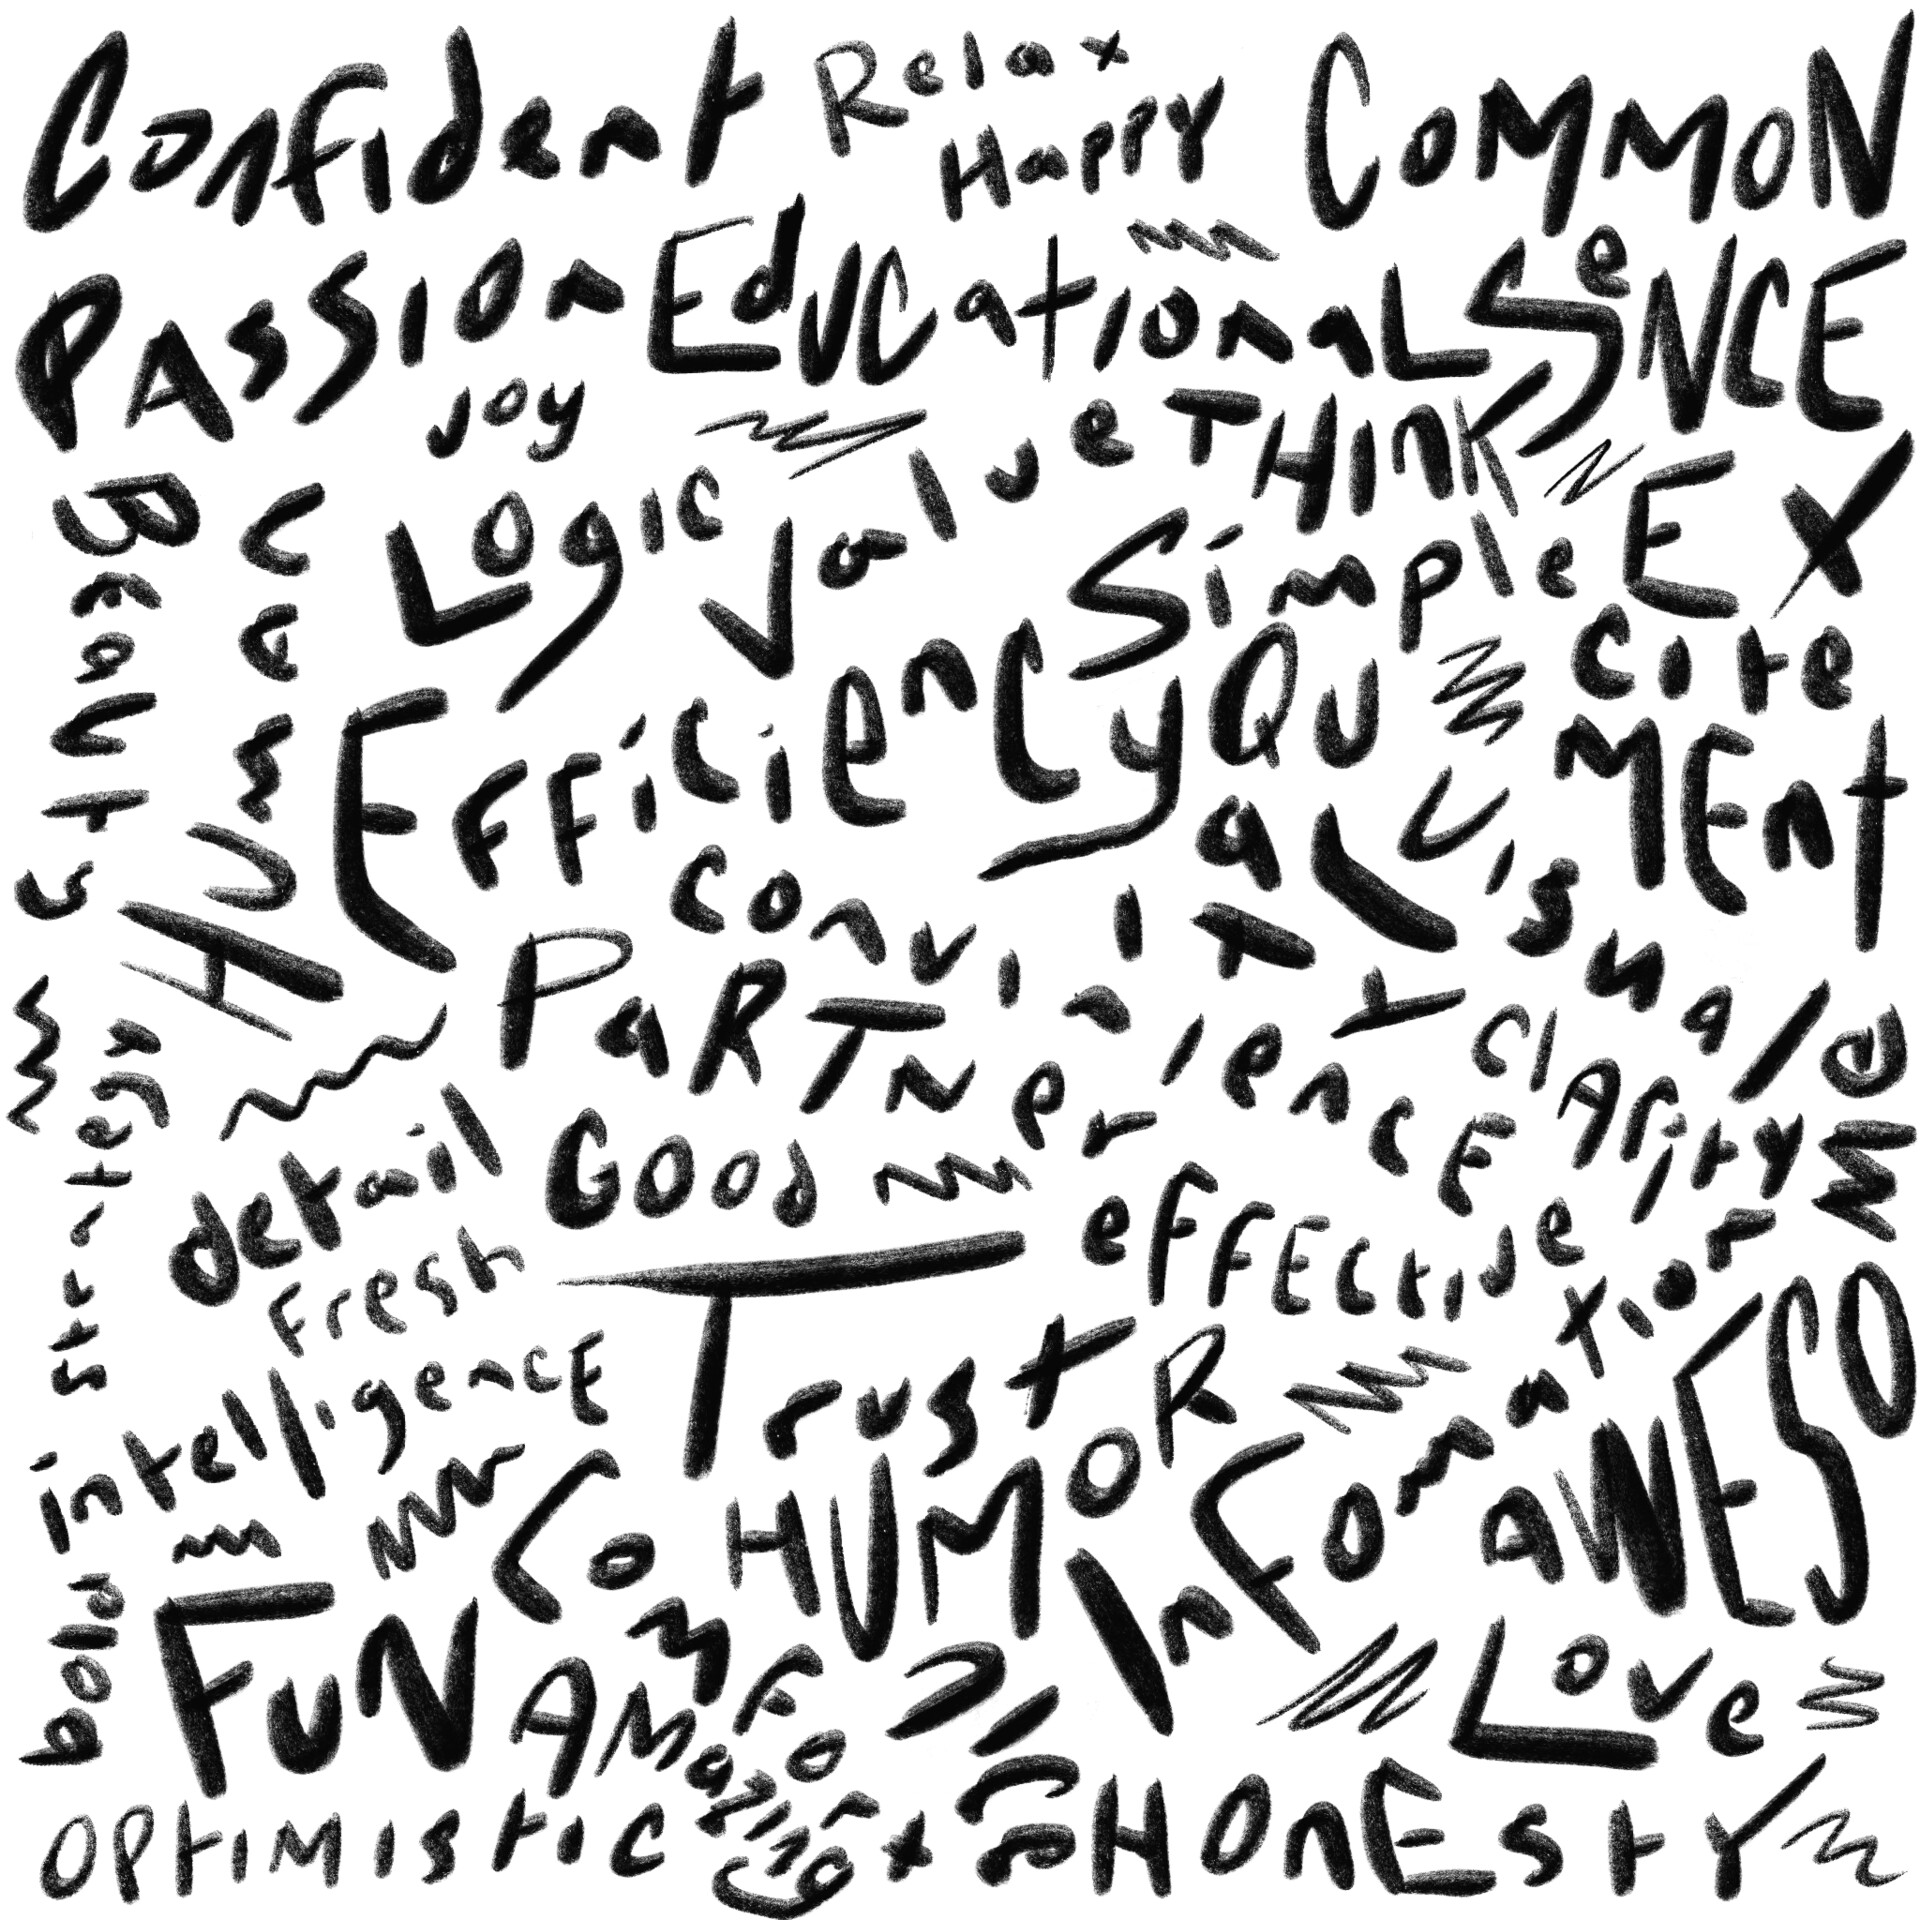 Confident
Relax
Happy
COMMON
SeNCE
PAssion
EdUCationaL
Joy
Logic
Value
THInK
Simple
EX
cite
MEnt
BEauty
HUman
EFFiciency
QUaLity
Visual
conviniencE
PaRTner
ClArity
strategy
detail
GOOd
eFFEctive
Fresh
Trust
intelligencE
HUMOR
InFOmation
aWESOMe
bold
FUN
ComFort
AMazing
nice
Love
OPtiMistic
HOnEstY